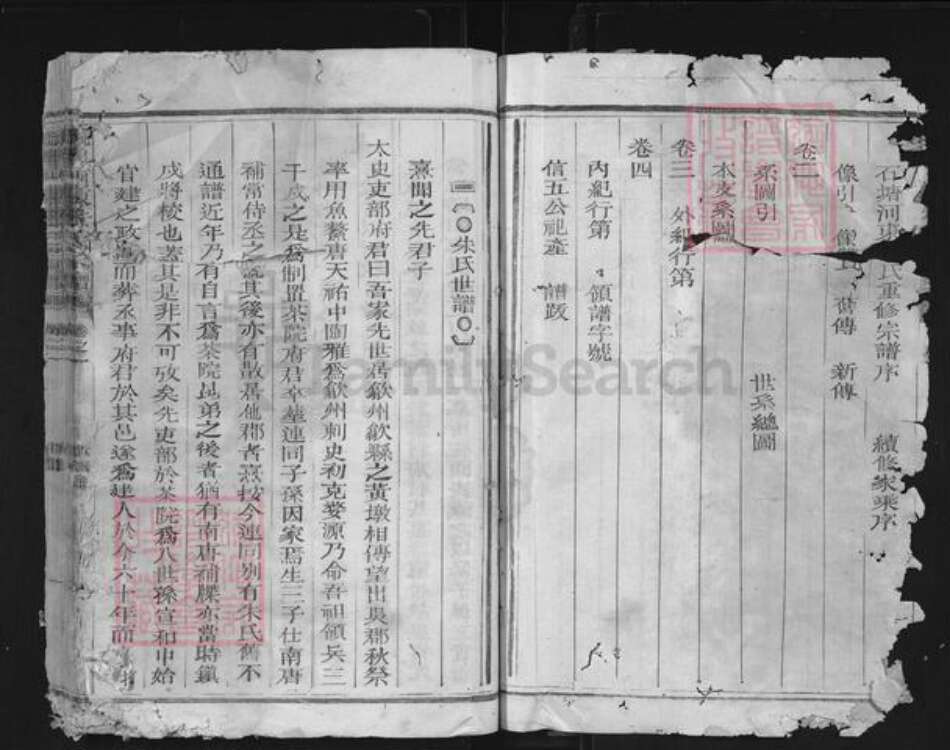 石塘河東 氏重修宗譜序 續修家乘序
像引 像 舊傳 新傳
卷二
系圖引
世系總圖
本支系圖
卷三 外紀行第
卷四
內紀行第 領譜字號
信五公祀產 譜跋
朱氏世譜
熹聞之先君子
太史吏部府君曰吾家先世居歙州歙縣之黃墩相傳望出吳郡秋祭
率用魚鱉唐天祐中陶雅為歙州刺史初克婺源乃命吾祖領兵三
千戍之是為制置茶院府君卒葬連同子孫因家焉生三子仕南唐
補常侍丞之 其後亦有散居他郡者熹按今連同別有朱氏舊不
通譜近年乃有自言為茶院昆弟之後者猶有南唐補牒亦當時鎮
戍將校也蓋其是非不可攷矣先吏部於茶院為八世孫宣和中始
官建之政 而葬丞事府君於其邑遂為建人於今六十年而
FamilySearch